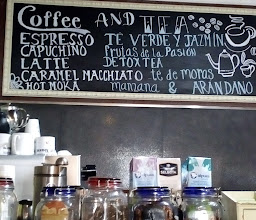 Coffee AND TEA
ESPRESSO TÉ VERDE Y JAZMÍN
CAPUCHINO frutas de la Pasión
LATTE DETOX TEA
CARAMEL MACCHIATO té de moras
& HOT MOKA manzana & ARANDANO